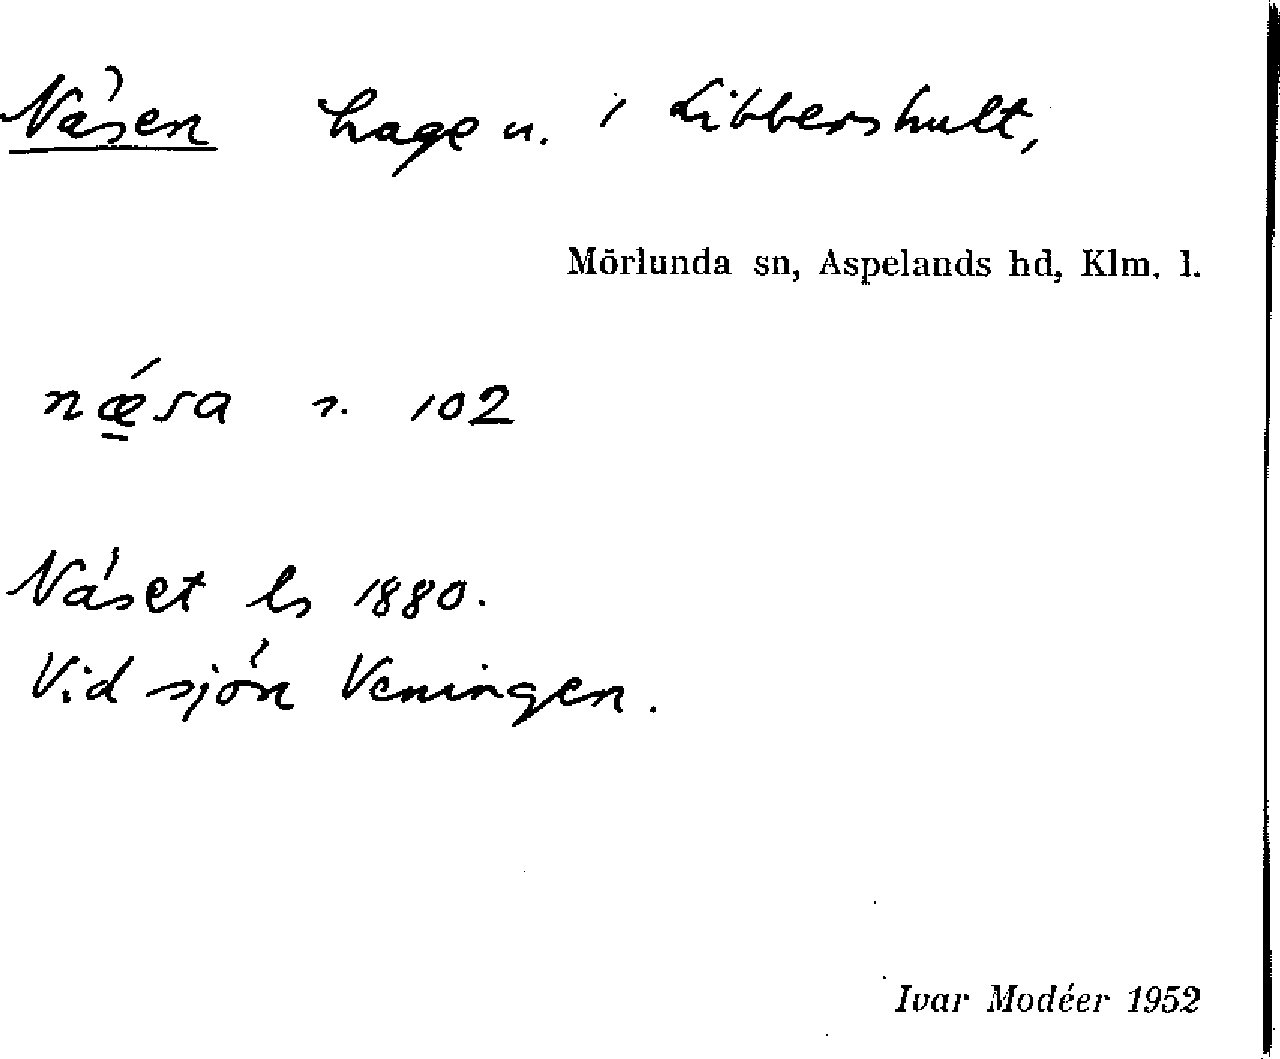 Näsen hage n. i Libbershult,
Mörlunda sn, Aspelands hd, Klm. l.
nǽ̱sa n. 102
Näset ls 1880.
Vid sjön Veningen.
Ivar Modéer 1952